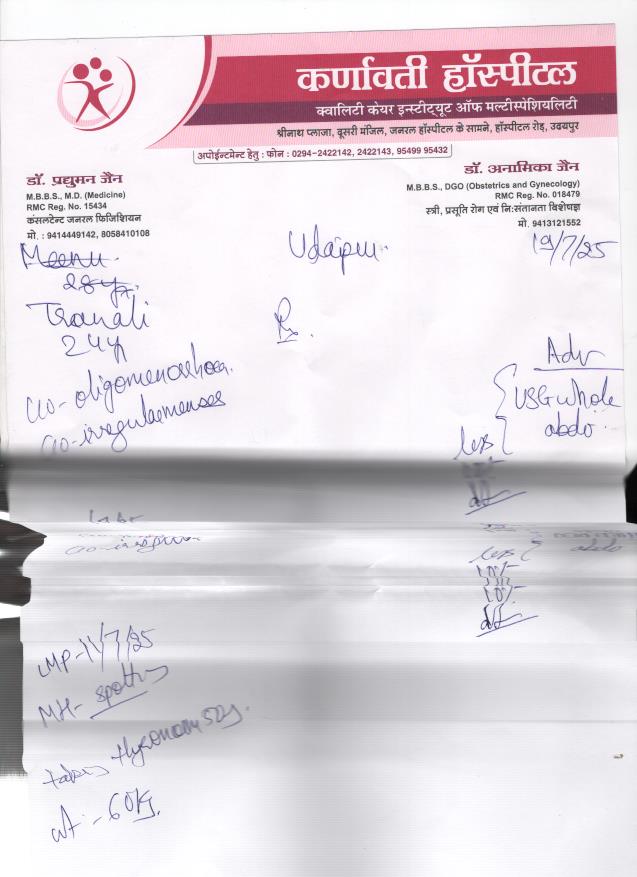 कर्णावती हॉस्पीटल
क्वालिटी केयर इन्स्टीट्यूट ऑफ मल्टीस्पेशियलिटी
श्रीनाथ प्लाजा, दूसरी मंजिल, जनरल हॉस्पीटल के सामने, हॉस्पीटल रोड़, उदयपुर
अपोईन्टमेण्ट हेतु : फोन : 0294-2422142, 2422143, 95499 95432
डॉ. प्रद्युमन जैन
M.B.B.S., M.D. (Medicine)
RMC Reg. No. 15434
कंसलटेन्ट जनरल फिजिशियन
मो. : 9414449142, 8058410108
डॉ. अनामिका जैन
M.B.B.S., DGO (Obstetrics and Gynecology)
RMC Reg. No. 018479
स्त्री, प्रसूति रोग एवं नि:संतानता विशेषज्ञ
मो. 9413121552
Meenu.
28yr.
Udaipur.
19/7/25
24y
Rx.
c/o - oligomenorrhoea.
c/o - irregular menses
Adv
USG whole
abdo.
less
less
abdo
10%
LMP - 11/7/25
MH - spotting
takes thyronorm 50g.
wt. - 60kg.